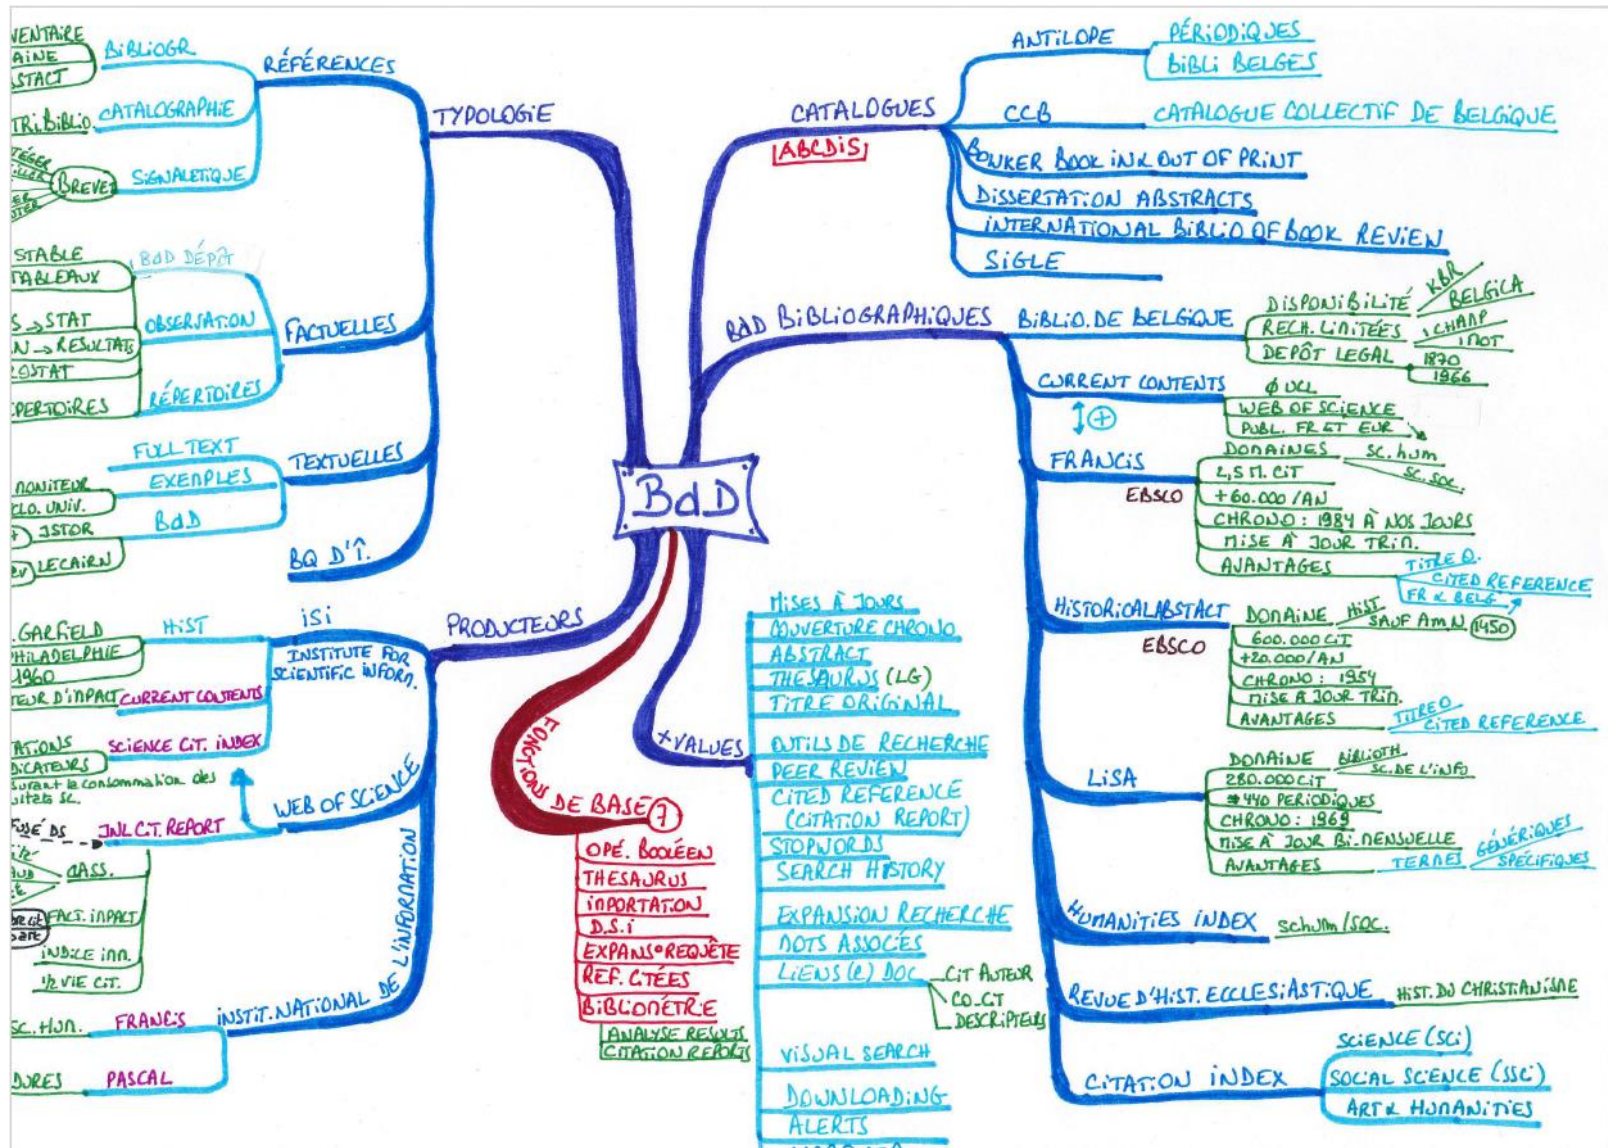 BdD
TYPOLOGIE
RÉFÉRENCES
BIBLIOGR.
CATALOGRAPHIE
SIGNALETIQUE
BREVET
FACTUELLES
BdD DÉPÔT
STABLE
TABLEAUX
OBSERVATION
RÉPERTOIRES
TEXTUELLES
FULL TEXT
EXEMPLES
MONITEUR
BdD
JSTOR
LE CAIRN
BQ D'I.
PRODUCTEURS
ISI
INSTITUTE FOR
SCIENTIFIC INFORM.
HIST
GARFIELD
PHILADELPHIE
1960
CURRENT CONTENTS
SCIENCE CIT. INDEX
WEB OF SCIENCE
JNL CIT. REPORT
CLASS.
FACT. IMPACT
INDICE IMM.
1/2 VIE CIT.
INSTIT. NATIONAL DE L'INFORMATION
FRANCIS
SC. HUM.
PASCAL
FONCTIONS DE BASE 7
OPÉ. BOOLÉEN
THESAURUS
IMPORTATION
D.S.I
EXPANS° REQUÊTE
REF. CITÉES
BIBLIOMÉTRIE
ANALYSE RESULTS
CITATION REPORTS
+VALUES
MISES À JOURS
COUVERTURE CHRONO
ABSTRACT
THESAURUS (LG)
TITRE ORIGINAL
OUTILS DE RECHERCHE
PEER REVIEW
CITED REFERENCE
(CITATION REPORT)
STOPWORDS
SEARCH HISTORY
EXPANSION RECHERCHE
MOTS ASSOCIÉS
LIENS (E) DOC
CIT AUTEUR
CO-CIT
DESCRIPTEURS
VISUAL SEARCH
DOWNLOADING
ALERTS
CATALOGUES
ABCDIS
ANTILOPE
PÉRIODIQUES
BIBLI BELGES
CCB
CATALOGUE COLLECTIF DE BELGIQUE
BOWKER BOOK IN & OUT OF PRINT
DISSERTATION ABSTRACTS
INTERNATIONAL BIBLIO OF BOOK REVIEW
SIGLE
BdD BIBLIOGRAPHIQUES
BIBLIO. DE BELGIQUE
DISPONIBILITÉ
KBR
BELGICA
RECH. LIMITÉES
1 CHAMP
1 MOT
DEPÔT LEGAL
1870
1966
CURRENT CONTENTS
Ø UCL
WEB OF SCIENCE
PUBL. FR ET EUR
+
FRANCIS
EBSCO
DOMAINES
SC. HUM
SC. SOC.
2,5 M. CIT
+60.000 / AN
CHRONO : 1984 À NOS JOURS
MISE À JOUR TRIM.
AVANTAGES
TITRE O.
CITED REFERENCE
FR & BELG
HISTORICAL ABSTACT
EBSCO
DOMAINE
HIST
SAUF AM.N 1450
600.000 CIT
+20.000/AN
CHRONO : 1954
MISE A JOUR TRIM.
AVANTAGES
TITRE O
CITED REFERENCE
LISA
DOMAINE
BIBLIOTH
SC. DE L'INFO
280.000 CIT
≠ 440 PERIODIQUES
CHRONO : 1969
MISE À JOUR BI-MENSUELLE
AVANTAGES
TERMES
GÉNÉRIQUES
SPÉCIFIQUES
HUMANITIES INDEX
SC HUM / SOC.
REVUE D'HIST. ECCLESIASTIQUE
HIST. DU CHRISTIANISME
CITATION INDEX
SCIENCE (SCI)
SOCIAL SCIENCE (SSCI)
ART & HUMANITIES